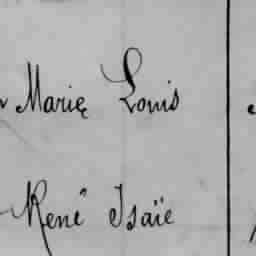 Marie Louis
René Isaïe